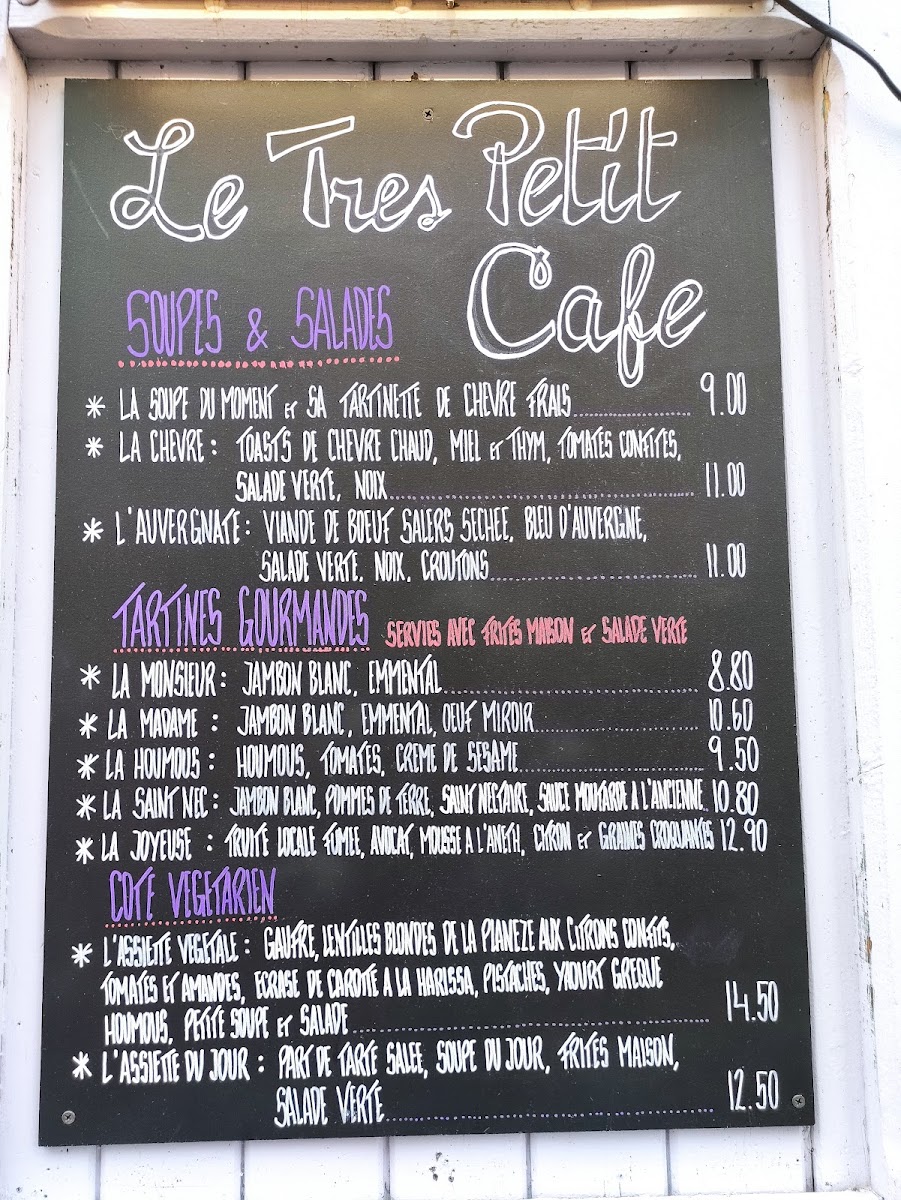 Le Tres Petit
Cafe
SOUPES & SALADES
* LA SOUPE DU MOMENT ET SA TARTINETTE DE CHEVRE FRAIS 9.00
* LA CHEVRE : TOASTS DE CHEVRE CHAUD, MIEL ET THYM, TOMATES CONFITES,
SALADE VERTE, NOIX 11.00
* L'AUVERGNATE : VIANDE DE BOEUF SALERS SECHEE, BLEU D'AUVERGNE,
SALADE VERTE, NOIX, CROUTONS 11.00
TARTINES GOURMANDES SERVIES AVEC FRITES MAISON ET SALADE VERTE
* LA MONSIEUR : JAMBON BLANC, EMMENTAL 8.80
* LA MADAME : JAMBON BLANC, EMMENTAL, OEUF MIROIR 10.60
* LA HOUMOUS : HOUMOUS, TOMATES, CREME DE SESAME 9.50
* LA SAINT NEC : JAMBON BLANC, POMMES DE TERRE, SAINT NECTAIRE, SAUCE MOUTARDE A L'ANCIENNE 10.80
* LA JOYEUSE : TRUITE LOCALE FUMEE, AVOCAT, MOUSSE A L'ANETH, CITRON ET GRAINES CROQUANTES 12.90
COTE VEGETARIEN
* L'ASSIETTE VEGETALE : GAUFRE, LENTILLES BLONDES DE LA PLANEZE AUX CITRONS CONFITS,
TOMATES ET AMANDES, ECRASE DE CAROTTE A LA HARISSA, PISTACHES, YAOURT GREQUE
HOUMOUS, PETITE SOUPE ET SALADE 14.50
* L'ASSIETTE DU JOUR : PART DE TARTE SALEE, SOUPE DU JOUR, FRITES MAISON,
SALADE VERTE 12.50